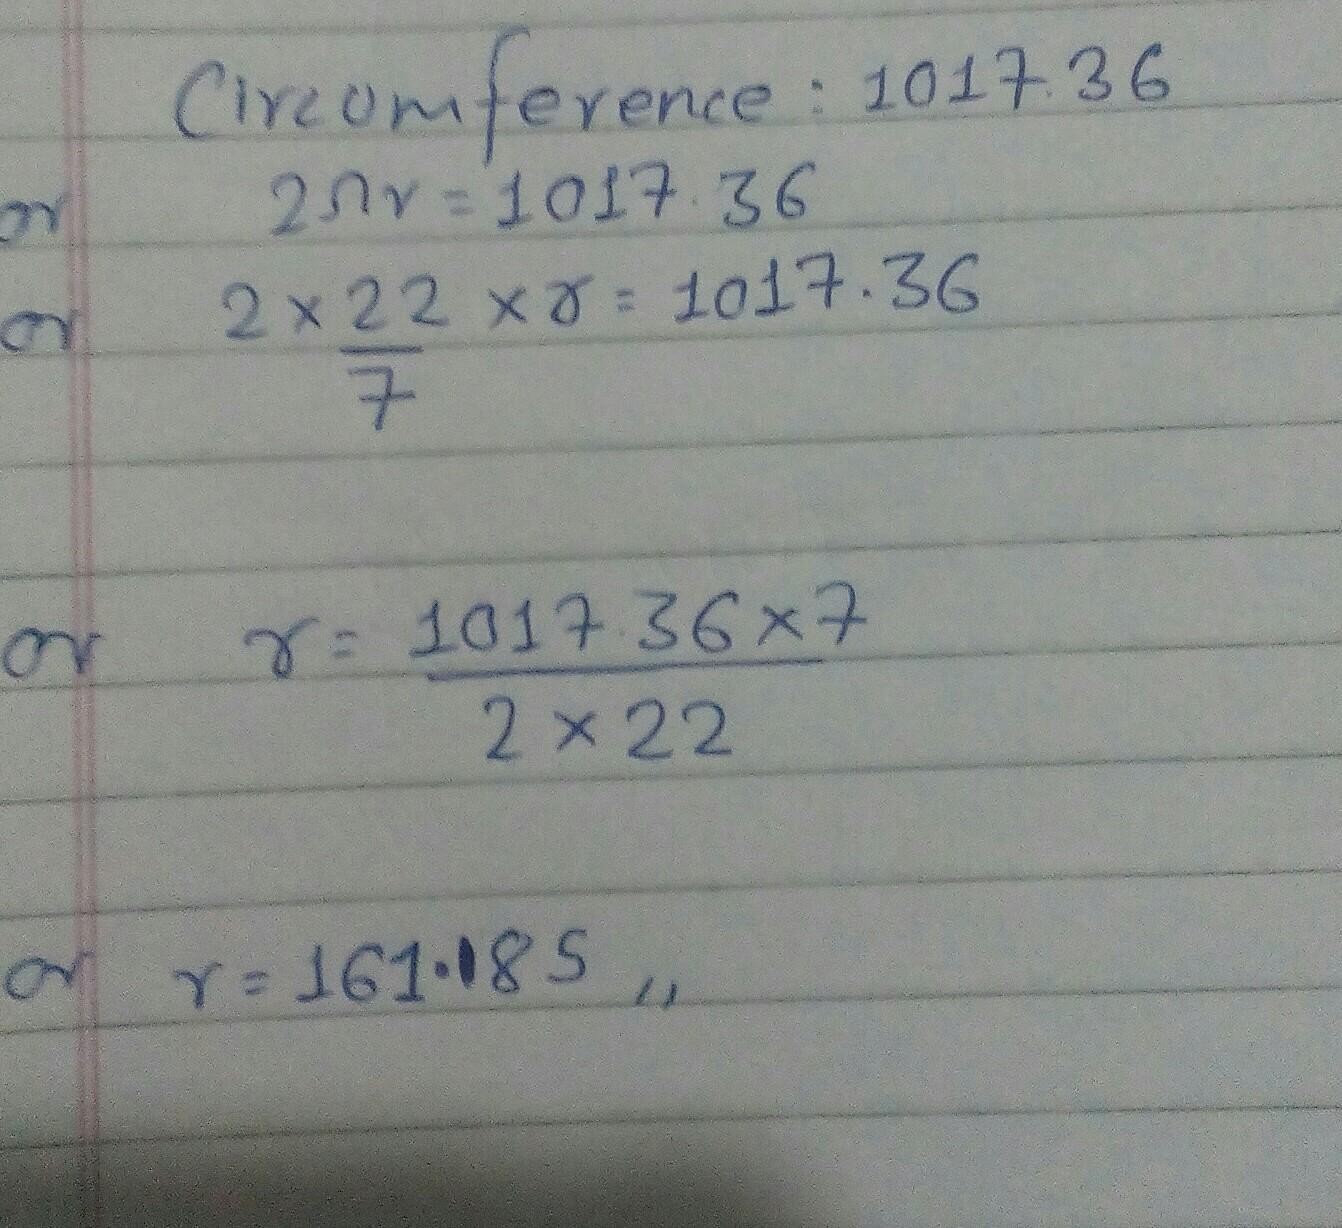 Circumference : 1017.36
or 2πr = 1017.36
or 2 × 22/7 × r = 1017.36
or r = 1017.36 × 7 / 2 × 22
or r = 161.185 ,,